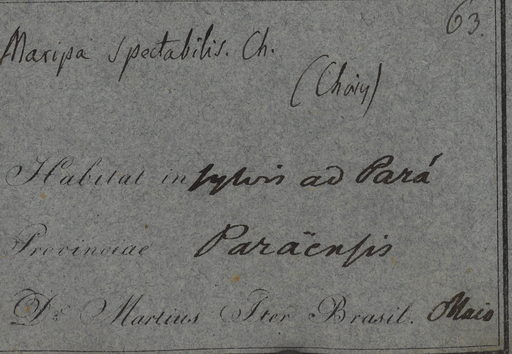 63.
Maripa spectabilis. Ch.
(Choisy)
Habitat in sylvis ad Pará
Provinciae Paräensis
Dr. Martius Iter Brasil. Maio